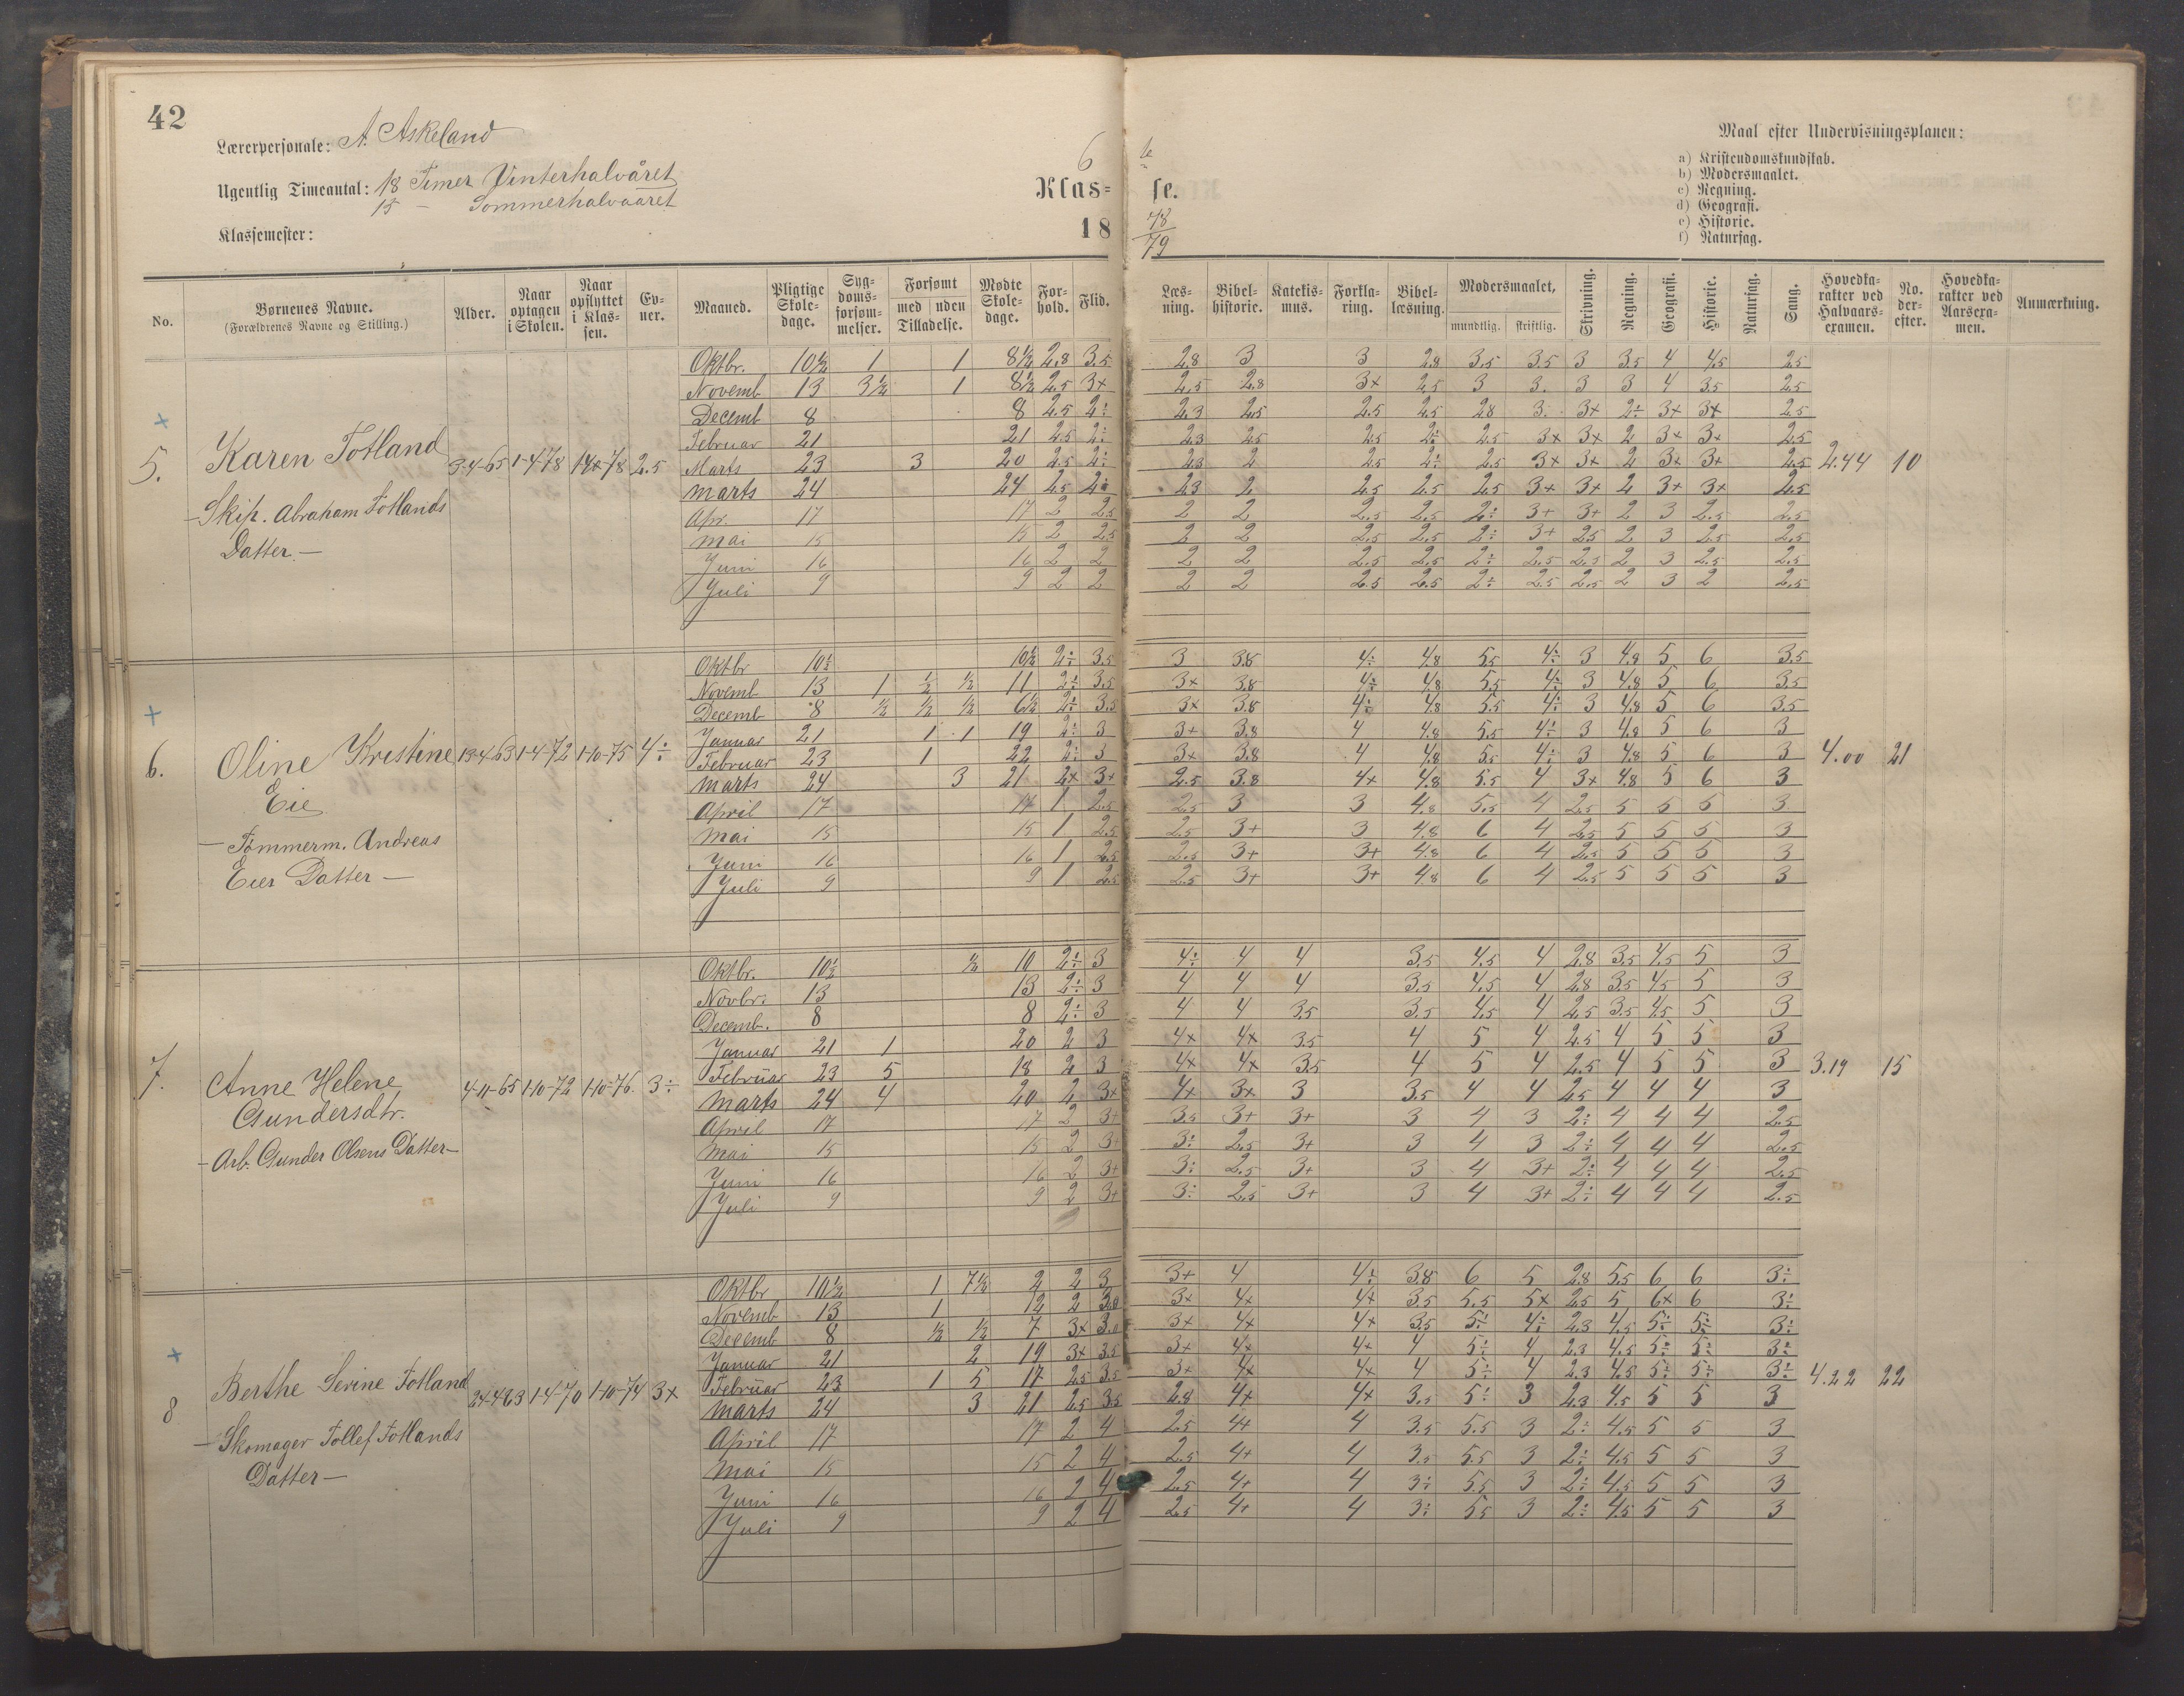 42
Lærerpersonale: A. Askeland
Ugentlig Timeantal: 18 Timer Vinterhalvåret
15 – Sommerhalvaaret
Klassemester:
6 te
Klas= se.
18 78/79
Maal efter Undervisningsplanen:
a) Kristendomskundskab.
b) Modersmaalet.
c) Regning.
d) Geografi.
e) Historie.
f) Naturfag.
No. Børnenes Navne. (Forældrenes Navne og Stilling.) Alder. Naar optagen i Skolen. Naar opflyttet i Klassen. Evner. Maaned. Pligtige Skoledage. Sygdomsforsømmelser. Forsømt med uden Tilladelse. Mødte Skoledage. Forhold. Flid. Læsning. Bibelhistorie. Katekismus. Forklaring. Bibellæsning. Modersmaalet, mundtlig. skriftlig. Skrivning. Regning. Geografi. Historie. Naturfag. Sang. Hovedkarakter ved Halvaarsexamen. No. derefter. Hovedkarakter ved Aarsexamen. Anmærkning.
Oktbr. 10½ 1 1 8½ 2.8 3.5 2.8 3 3 2.8 3.5 3.5 3 3.5 4 4.5 2.5
Novemb 13 3½ 1 8½ 2.5 3+ 2.5 2.8 3+ 2.5 3 3. 3 3 4 3.5 2.5
Decemb 8 8 2.5 2÷ 2.3 2.5 2.5 2.5 2.8 3. 3+ 2÷ 3+ 3+ 2.5
Februar 21 21 2.5 2÷ 2.3 2.5 2.5 2÷ 2.5 3+ 3+ 2 3+ 3+ 2.5
5. Karen Totland 3-4-65 1-4-78 2.5 Marts 23 3 20 2.5 2÷ 2.3 2 2.5 2÷ 2.5 3+ 3+ 2 3+ 3+ 2.5 2.44 10
Marts 24 24 2.5 2÷ 2.3 2 2.5 2.5 2.5 3+ 3+ 2 3+ 3+ 2.5
– Skip. Abraham Totlands
Apr. 17 17 2 2.5 2 2 2.5 2.5 2÷ 3+ 3+ 2 3 2.5 2.5
Datter –
Mai 15 15 2 2.5 2 2 2.5 2.5 2÷ 3+ 2.5 2 3 2.5 2.5
Juni 16 16 2 2 2 2 2.5 2.5 2÷ 2.5 2.5 2 3 2.5 2.5
Juli 9 9 2 2 2 2 2.5 2.5 2÷ 2.5 2.5 2 3 2 2.5
Oktbr 10½ 10½ 2÷ 3.5 3 3.8 4÷ 4.8 5.5 4÷ 3 4.8 5 6 3.5
Novemb 13 1 ½ ½ 11 2÷ 3.5 3+ 3.8 4÷ 4.8 5.5 4÷ 3 4.8 5 6 3.5
Decemb 8 ½ ½ ½ 6½ 2÷ 3.5 3+ 3.8 4÷ 4.8 5.5 4÷ 3 4.8 5 6 3.5
Januar 21 1 1 19 2÷ 3 3+ 3.8 4 4.8 5.5 4÷ 3 4.8 5 6 3
6. Oline Kristine 13-4-63 1-4-72 1-10-75 4÷ Februar 23 1 22 2÷ 3 3+ 3.8 4 4.8 5.5 4÷ 3 4.8 5 6 3 4.00 21
Eie
Marts 24 3 21 2+ 3+ 2.5 3.8 4+ 4.8 5.5 4 3+ 4.8 5 6 3
April 17 17 1 2.5 2.5 3 3 4.8 5.5 4 2.5 5 5 5 3
– Tømmerm. Andreas
Mai 15 15 1 2.5 2.5 3+ 3 4.8 6 4 2.5 5 5 5 3
Eies Datter –
Juni 16 16 1 2.5 2.5 3+ 3+ 4.8 6 4 2.5 5 5 5 3
Juli 9 9 1 2.5 2.5 3+ 3+ 4.8 6 4 2.5 5 5 5 3
Oktbr. 10½ ½ 10 2÷ 3 4÷ 4 4 3.5 4.5 4 2.8 3.5 4.5 5 3
Novbr. 13 13 2÷ 3 4 4 4 3.5 4.5 4 2.8 3.5 4.5 5 3
Decemb. 8 8 2÷ 3 4 4 3.5 3.5 4.5 4 2.5 3.5 4.5 5 3
Januar 21 1 20 2 3 4+ 4+ 3.5 4 5 4 2.5 4 5 5 3
7. Anne Helene 4-11-65 1-10-72 1-10-76. 3÷ Februar 23 5 18 2 3 4+ 4+ 3.5 4 5 4 2.5 4 5 5 3 3.19 15
Gundersdtr.
Marts 24 4 20 2 3+ 4+ 3+ 3 3.5 4 4 2.5 4 4 4 3
April 17 17 2 3+ 3.5 3+ 3+ 3 4 3 2÷ 4 4 4 2.5
– Arb. Gunder Olsens Datter –
Mai 15 15 2 3+ 3÷ 2.5 3+ 3 4 3 2÷ 4 4 4 2.5
Juni 16 16 2 3+ 3÷ 2.5 3+ 3 4 3+ 2÷ 4 4 4 2.5
Juli 9 9 2 3+ 3÷ 2.5 3+ 3 4 3+ 2÷ 4 4 4 2.5
Oktbr 10½ 1 7½ 2 2 3 3+ 4 4÷ 3.8 6 5 2.8 5.5 6 6 3÷
Novemb 13 1 12 2 3.0 3+ 4+ 4+ 3.5 5.5 5+ 2.5 5 6+ 6 3÷
Decemb 8 ½ ½ 7 3+ 3.0 3+ 4+ 4+ 3.5 5÷ 4÷ 2.3 4.5 5÷ 5÷ 3÷
Januar 21 2 19 3+ 3.5 3+ 4+ 4+ 4 5÷ 4 2.3 4.5 5÷ 5÷ 3÷
8 Berthe Serine Totland 24-4-63 1-4-70 1-10-74 3+ Februar 23 1 5 17 2.5 3.5 3+ 4+ 4+ 4 5÷ 4 2.3 4.5 5÷ 5÷ 3÷ 4.22 22
Marts 24 3 21 2.5 3.5 2.8 4+ 4+ 3.5 5÷ 3 2.3 4.5 5 5 3
– Skomager Tollef Totlands
April 17 17 2 4 2.5 4+ 4 3.5 5.5 3 2÷ 4.5 5 5 3
Datter –
Mai 15 15 2 4 2.5 4+ 4 3.5 5.5 3 2÷ 4.5 5 5 3
Juni 16 16 2 4 2.5 4+ 4 3÷ 5.5 3 2÷ 4.5 5 5 3
Juli 9 9 2 4 2.5 4+ 4 3÷ 5.5 3 2÷ 4.5 5 5 3